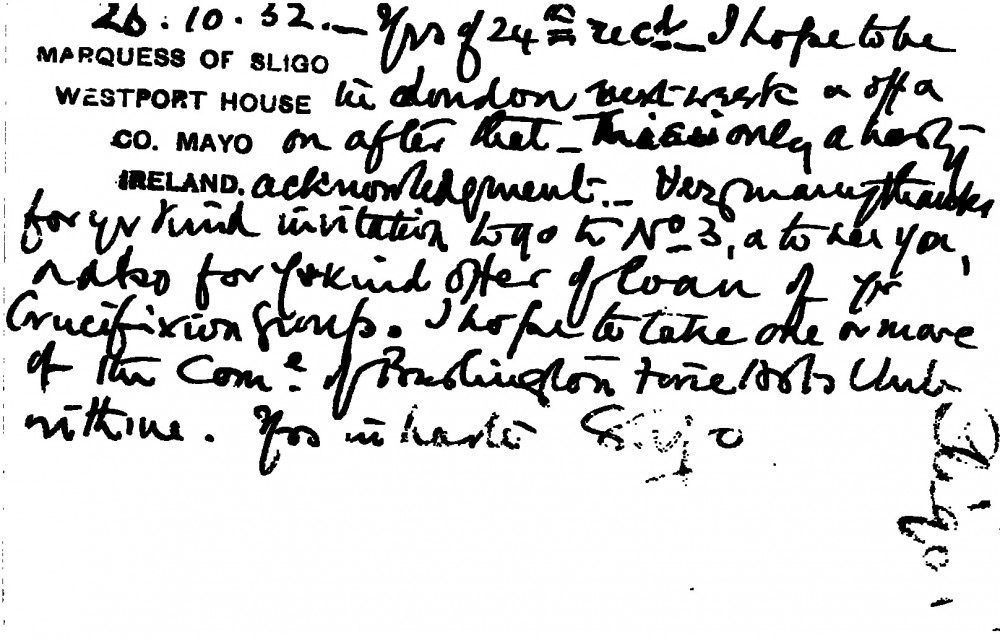 26.10.32. — Yrs of 24th recd — I hope to be
MARQUESS OF SLIGO
WESTPORT HOUSE
CO. MAYO
IRELAND.
in London next week & off &
on after that — This is only a hasty
acknowledgment. — Very many thanks
for yr kind invitation to go to No 3, & to see you,
& also for yr kind offer of loan of yr
Crucifixion Group. I hope to take one or more
of the Come. of Burlington Fine Arts Club
with me. Yrs in haste Sligo
Sligo.